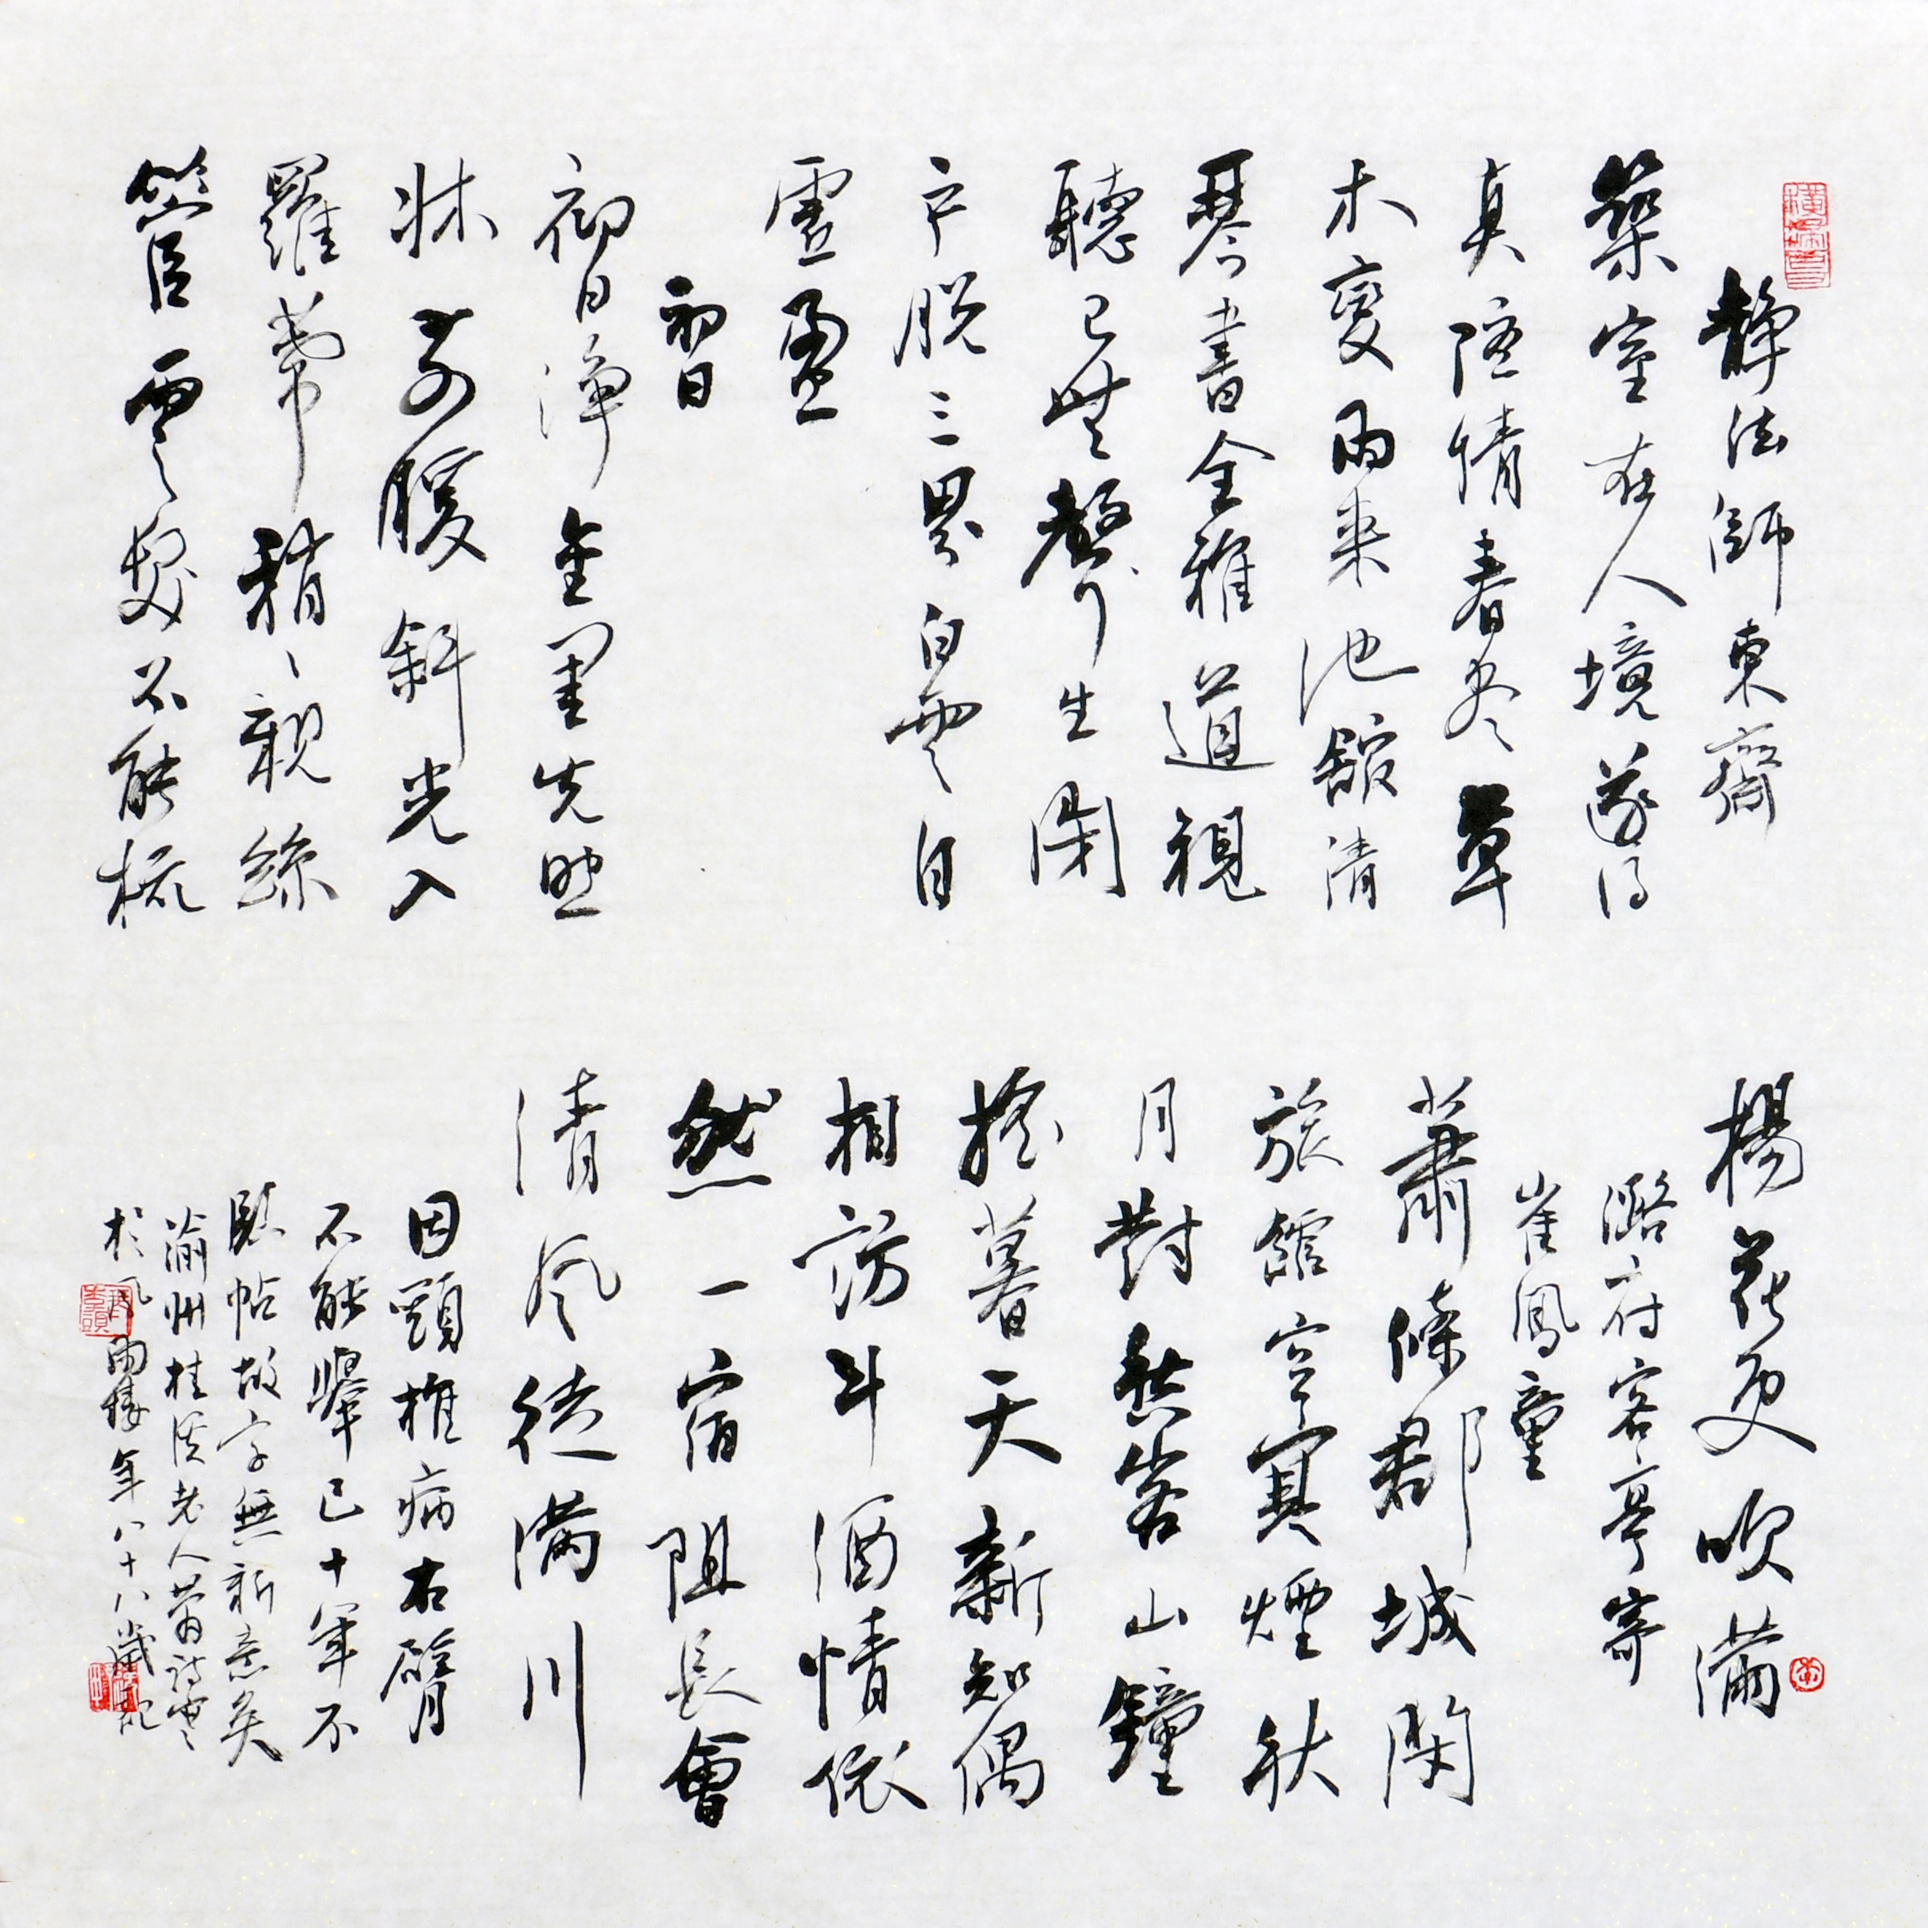 静法師東齋
築室在人境遂得
真隱情春尽草
木變雨来池館清
琴書全雅道視
聽已無聲生閉
戶脫三界白雲自
虛盈
初日
初日淨金閨先照
牀前暖斜光入
羅幕稍、親絲
管雲髮不能梳
楊花更吹滿
潞府客亭寄
崔鳳童
蕭條郡城閉
旅館空寒煙秋
月對愁客山鐘
搖暮天新知偶
相訪斗酒情依
然一宿阻長會
清風徒滿川
因頸椎病右臂
不能舉已十年不
臨帖故字無新意矣
渝州桂溪老人
於風雨樓年八十八歲記